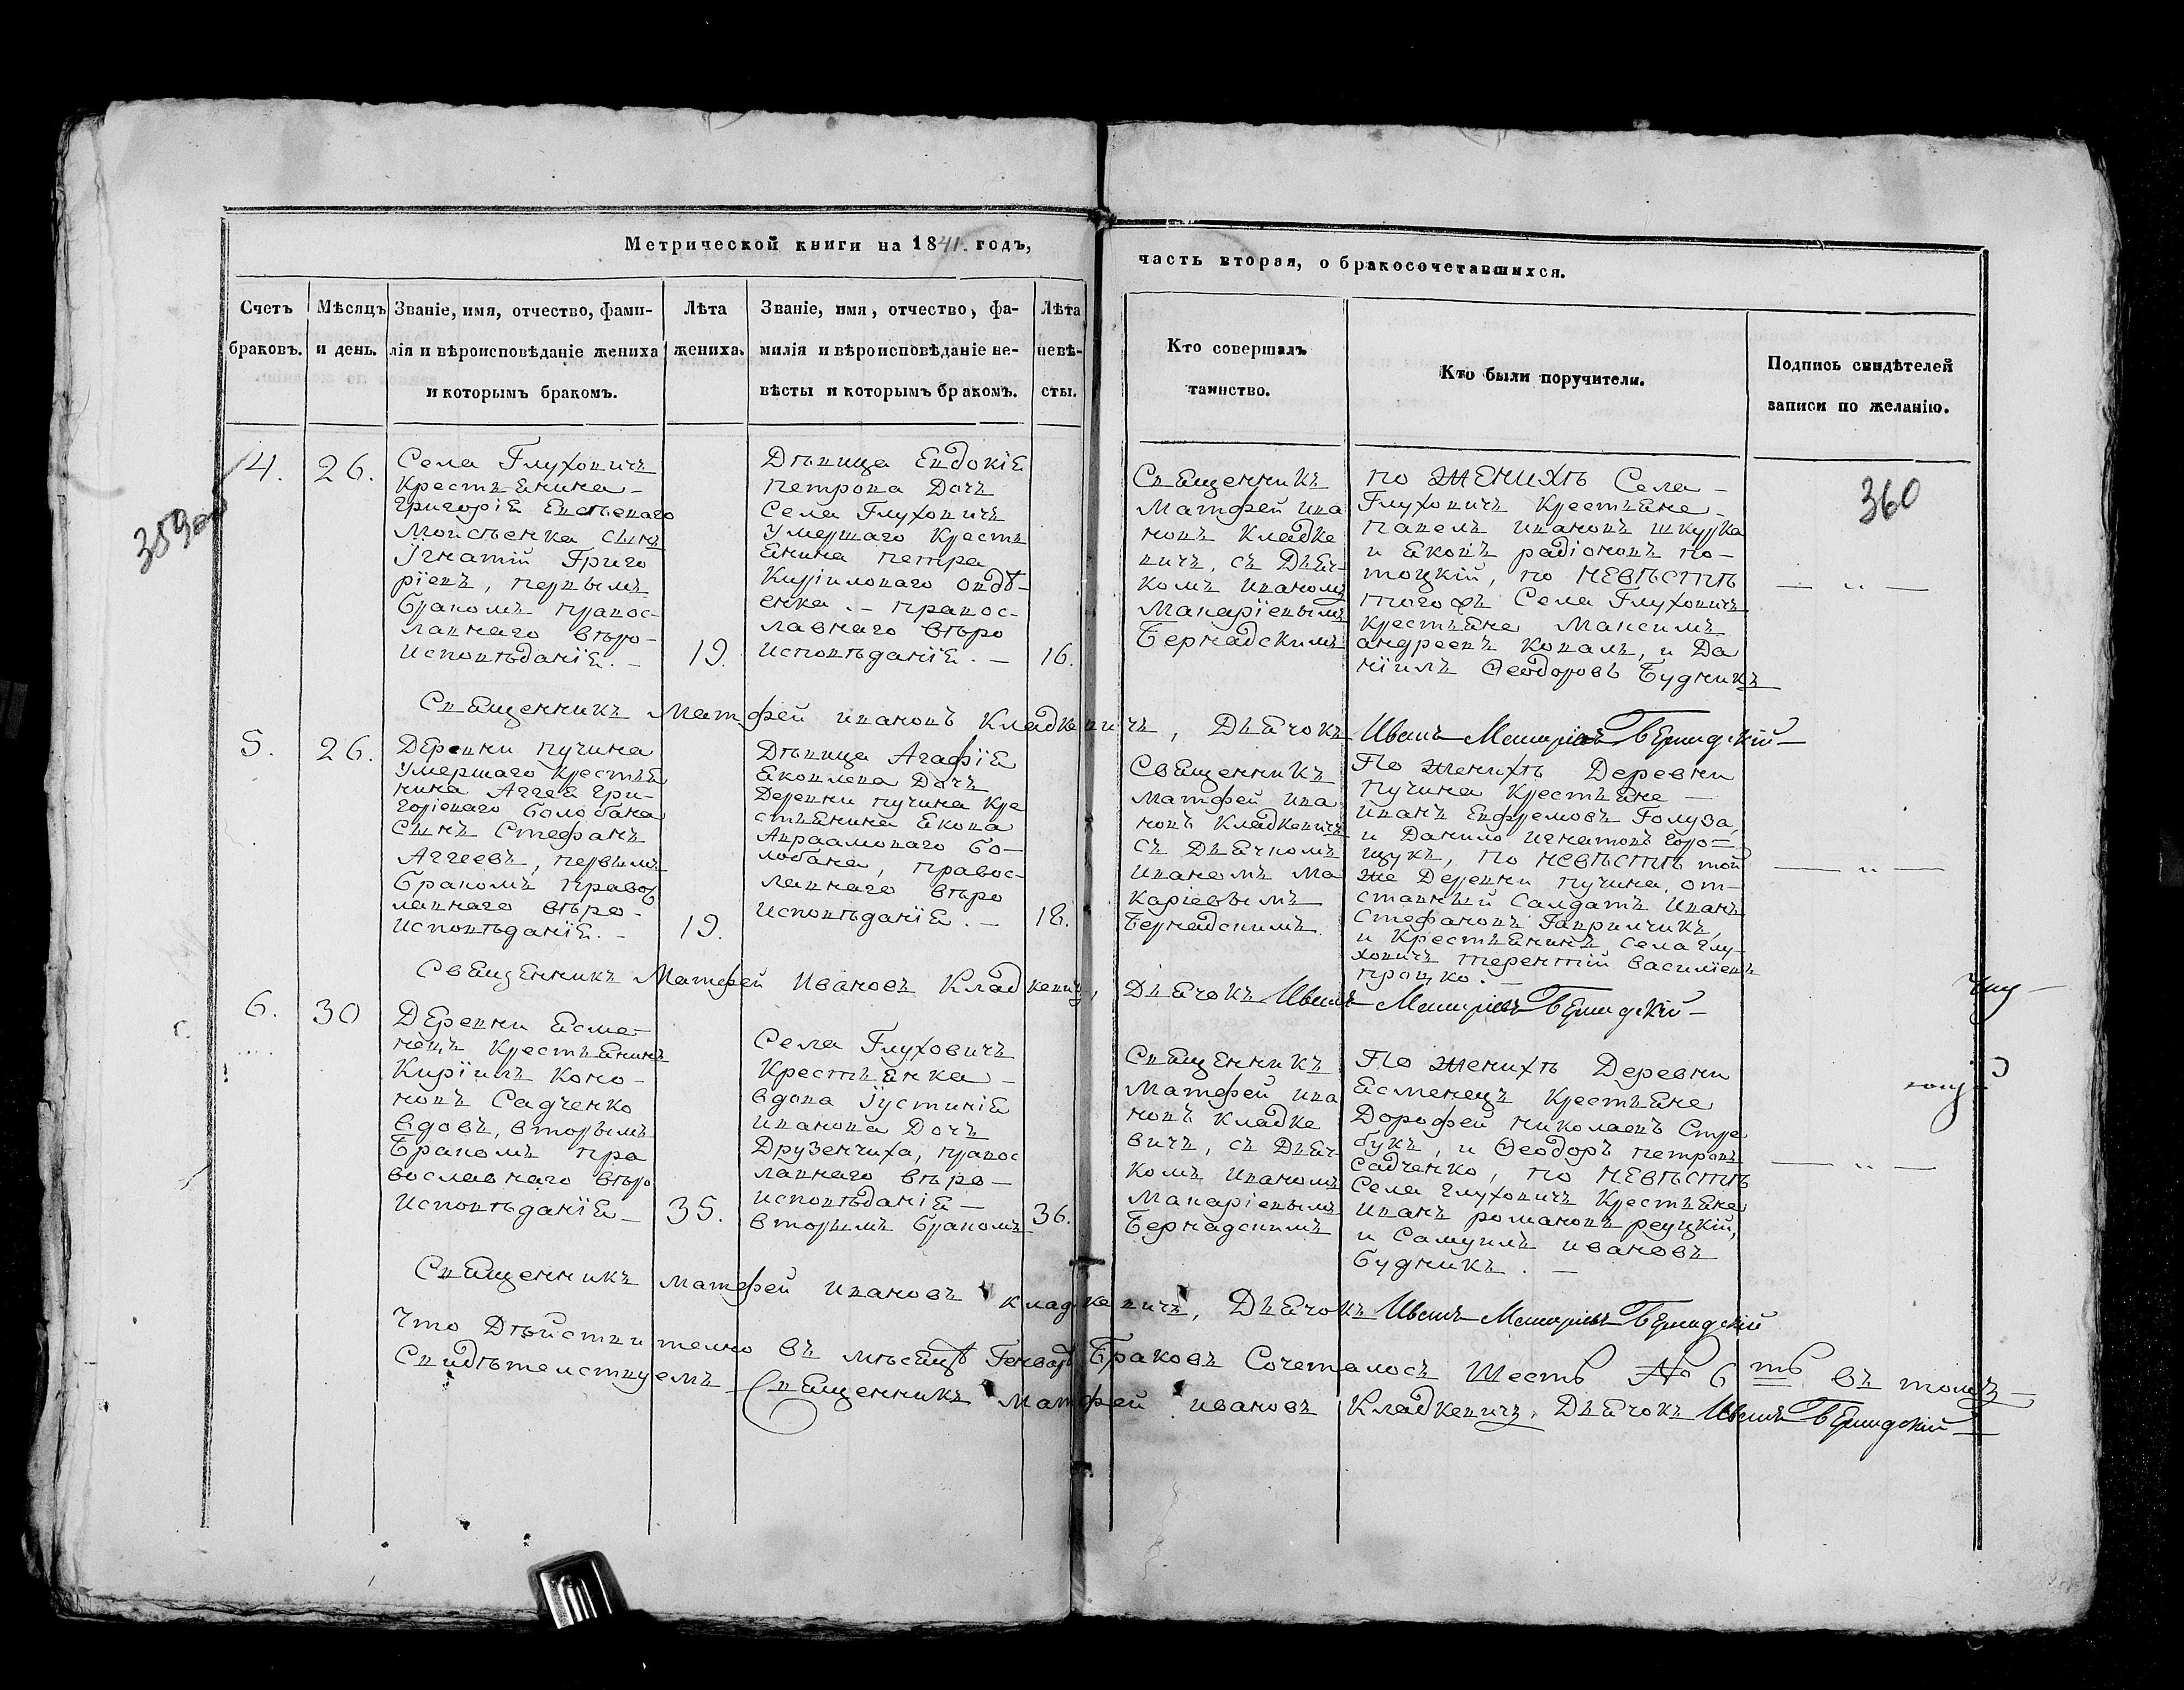 Метрической книги на 1841. годъ,
часть вторая, о бракосочетавшихся.
Счетъ
браковъ.
Мѣсяцъ
и день.
Званіе, имя, отчество, фами-
лія и вѣроисповѣданіе жениха
и которымъ бракомъ.
Лѣта
жениха.
Званіе, имя, отчество, фа-
милія и вѣроисповѣданіе не-
вѣсты и которымъ бракомъ.
Лѣта
невѣ-
сты.
Кто совершалъ
таинство.
Кто были поручители.
Подпись свидѣтелей
записи по желанію.
360
4.
26.
Села Глуховичъ
Крестьянина
Григорія Евсѣеваго
Моисѣенка сынъ
Ігнатій Григо
ріевъ, первымъ
бракомъ правос-
лавнаго вѣро-
исповѣданія. —
19.
Дѣвица Евдокія
Петрова Дочь
Села Глуховичъ
Умершаго Кресть
янина Петра
Кириловаго
енка. — правос-
лавнаго вѣро
исповѣданія. —
16.
Священникъ
Матфей Ива
новъ Кладке
вичъ, съ Дьяч-
комъ Иваномъ
Макаріевымъ
Бернадскимъ
по жЕнихѣ Села —
Глуховичъ Крестьяне —
Павелъ Ивановъ шкурка
и Яковъ радіоновъ по-
тоцкій, по невѣстѣ
того жъ Села Глуховичъ
крестьяне Максимъ
андреевъ Коваль, и Да
ніилъ Ѳеодоровъ Будникъ
— „ —
Священникъ Матфей Ивановъ Кладкевичъ, Дьячокъ Иванъ Макаріевъ Бернадскій —
5.
26.
Деревни Пучина
Умершаго Крестья
нина Аггея Гри-
горіеваго Болобана
сынъ Стефанъ
Аггеевъ, первымъ
бракомъ правос
лавнаго вѣро-
исповѣданія. —
19.
Дѣвица Агафія
Яковлева Дочь
Деревни Пучина Кре
стьянина Якова
Авраамоваго Бо-
лобана, правос-
лавнаго вѣро
Исповѣданія. —
18.
Священникъ
Матфей Ива
новъ Кладкевичъ
съ Дьячкомъ
Иваномъ Ма
каріевымъ
Бернадскимъ.
По женихѣ Деревни
Пучина Крестьяне —
Иванъ Ефремовъ Голуза,
и Данило Игнатовъ Горо=
щукъ, по невѣстѣ той
же Деревни Пучина, от-
ставный Салдатъ Иванъ
Стефановъ Гаврилчикъ,
и Крестьянинъ Села Глу-
ховичъ терентій василіевъ
процко. —
— „ —
Священникъ Матфей Ивановъ Кладкевичъ, Дьячокъ Иванъ Макаріевъ Бернадскій —
6.
30
Деревни Есме-
нецъ Крестьянинъ
Кирилъ Коно-
новъ Садченко
вдовъ, вторымъ
бракомъ пра
вославнаго вѣро
Исповѣданія —
35.
Села Глуховичъ
Крестьянка —
вдова Іустинія
Иванова Дочь
Друзенчиха, правос
лавнаго вѣро —
исповѣданія —
вторымъ бракомъ
36.
Священникъ
Матфей Ива
новъ Кладке
вичъ, съ Дьяч-
комъ Иваномъ
Макаріевымъ
Бернадскимъ
По женихѣ Деревни
Есменецъ Крестьяне
Дорофей Николаевъ Стре
букъ, и Ѳеодоръ петровъ
Садченко, по невѣстѣ
Села Глуховичъ Крестьяне
Иванъ романовъ реуцкій,
и Самуилъ ивановъ
Будникъ. —
— „ —
Священникъ Матфей Ивановъ Кладкевичъ, Дьячокъ Иванъ Макаріевъ Бернадскій
Что Дѣйствително въ мѣсяцѣ Генварѣ Браковъ Сочеталось Шесть № 6 ть въ томъ —
Свидѣтелствуемъ — Священникъ Матфей Ивановъ Кладкевичъ, Дьячокъ Иванъ Бернадскій —